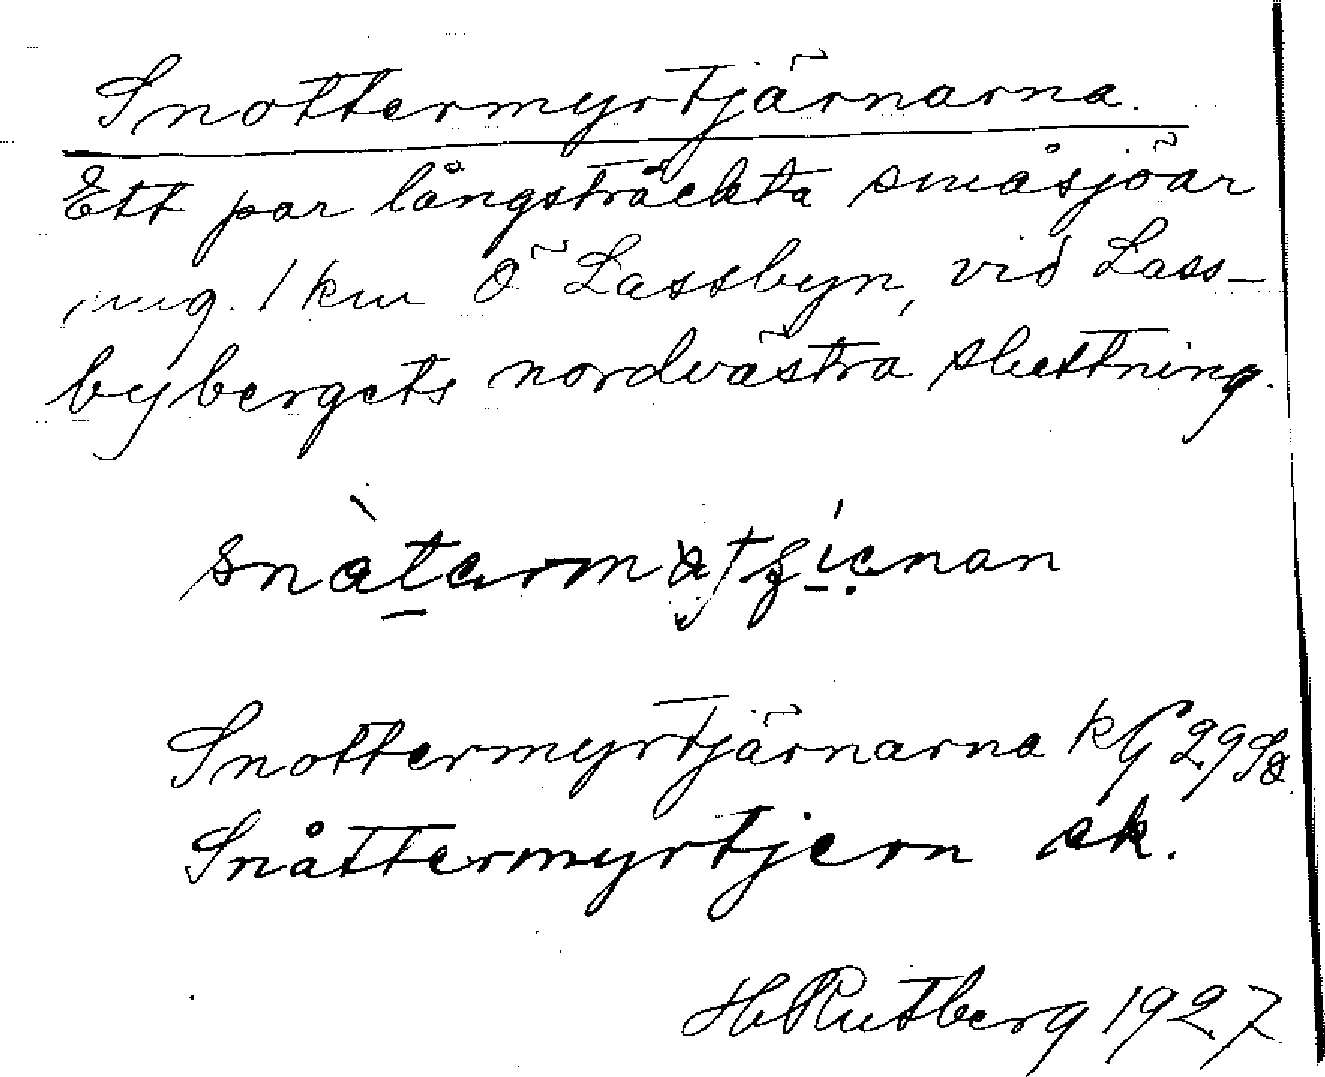 Snottermyrtjärnarna.
Ett par långsträckta småsjöar
ung. 1 km Ö Lassbyn, vid Lass-
bybergets nordvästra sluttning.
Snottermyrtjärnarna kG 29 Sa
Snåttermyrtjern ek.
H Rutberg 1927